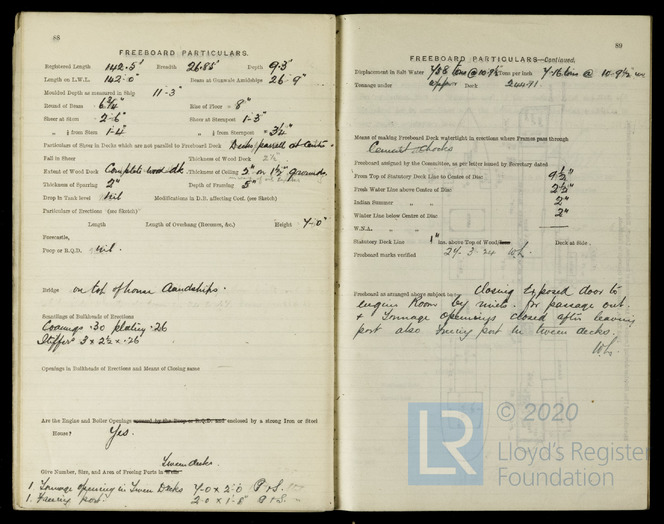 88
FREEBOARD PARTICULARS.
Registered Length 142.5' Breadth 26.85' Depth 9.3'
Length on L.W.L. 142'-0" Beam at Gunwale Amidships 26'-9"
Moulded Depth as measured in Ship 11'-3"
Round of Beam 6¾" Rise of Floor 8"
Sheer at Stem 2'-6" Sheer at Sternpost 1'-3"
" ⅛ from Stem 1'-4" " ⅛ from Sternpost 3¼"
Particulars of Sheer in Decks which are not parallel to Freeboard Deck Decks parallel at Centre
Fall in Sheer Thickness of Wood Deck 2½"
Extent of Wood Deck Complete wood dk Thickness of Ceiling 2" on 1½" grounds.
Thickness of Sparring 2" Depth of Framing 5"
Drop in Tank level Nil Modifications in D.B. affecting Coef. (see Sketch)
Particulars of Erections (see Sketch)
Length Length of Overhang (Recesses, &c.) Height 7'-0"
Forecastle,
Poop or R.Q.D. nil.
Bridge on top of house Amidships.
Scantlings of Bulkheads of Erections
Coamings .30 plating .26
Stiffrs 3 x 2½ x .26
Openings in Bulkheads of Erections and Means of Closing same
Are the Engine and Boiler Openings covered by the Poop or R.Q.D. and enclosed by a strong Iron or Steel
House? Yes.
Tween decks
Give Number, Size, and Area of Freeing Ports in Wells.
1. Tonnage opening in Tween Decks 4'-0 x 2'-0 P & S.
1. Freeing port. 2'-0 x 1'-8" P & S.
89
FREEBOARD PARTICULARS—Continued.
Displacement in Salt Water 738 tons @ 10-9½ Tons per Inch 7.76 tons @ 10-9½
Tonnage under Upper Deck 244.91.
Means of making Freeboard Deck watertight in erections where Frames pass through
Cement chocks
Freeboard assigned by the Committee, as per letter issued by Secretary dated
From Top of Statutory Deck Line to Centre of Disc 9½"
Fresh Water Line above Centre of Disc 2½"
Indian Summer " " 2"
Winter Line below Centre of Disc 2"
W.N.A. " "
Statutory Deck Line 1" ins. above Top of Wood Deck at Side.
Freeboard marks verified 27.3.24 W.L.
Freeboard as arranged above subject to closing exposed door to
engine Room by for passage out.
& Tonnage openings closed after leaving
port also freeing port in tween decks.
W.L.
LR
© 2020
Lloyd's Register
Foundation